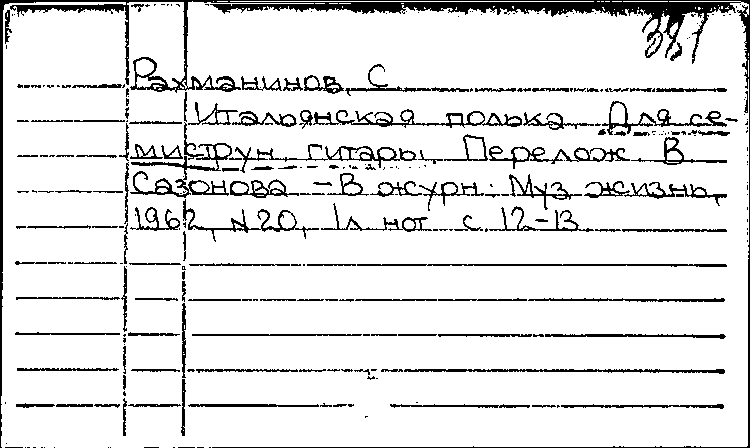 381
Рахманинов, С.
Итальянская полька. Для се-
миструн. гитары. Перелож. В.
Сазонова - В журн.: Муз. жизнь,
1962, N20, 1л. нот с. 12-13.